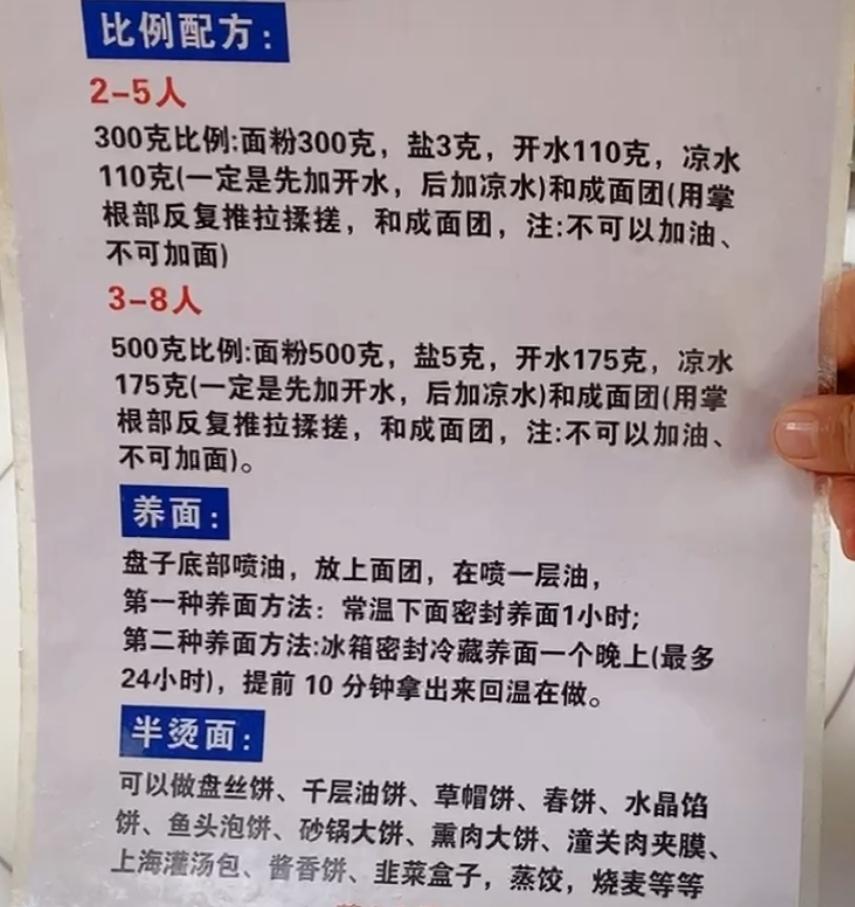 比例配方：
2-5人
300克比例:面粉300克，盐3克，开水110克，凉水
110克(一定是先加开水，后加凉水)和成面团(用掌
根部反复推拉揉搓，和成面团，注:不可以加油、
不可加面)
3-8人
500克比例:面粉500克，盐5克，开水175克，凉水
175克(一定是先加开水，后加凉水)和成面团(用掌
根部反复推拉揉搓，和成面团，注:不可以加油、
不可加面)。
养面：
盘子底部喷油，放上面团，在喷一层油，
第一种养面方法：常温下面密封养面1小时;
第二种养面方法:冰箱密封冷藏养面一个晚上(最多
24小时)，提前 10 分钟拿出来回温在做。
半烫面：
可以做盘丝饼、千层油饼、草帽饼、春饼、水晶馅
饼、鱼头泡饼、砂锅大饼、熏肉大饼、潼关肉夹膜、
上海灌汤包、酱香饼、韭菜盒子，蒸饺，烧麦等等